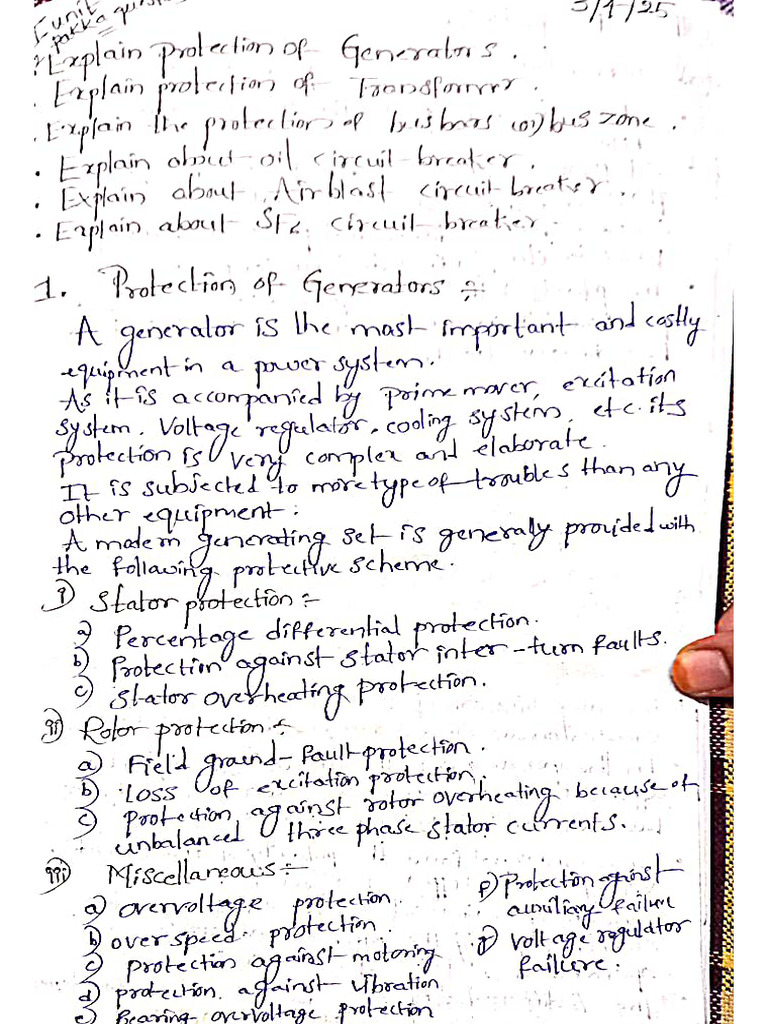 5/4/25
unit
pakka
Explain Protection of Generators.
Explain protection of Transformer.
Explain the protection of busbars (or) bus zone.
Explain about oil circuit breaker.
Explain about Airblast circuit breaker.
Explain about SF6 circuit breaker.
1. Protection of Generators :-
A generator is the most important and costly
equipment in a power system.
As it is accompanied by prime mover, excitation
system, Voltage regulator, cooling system, etc. its
protection is very complex and elaborate.
It is subjected to more type of troubles than any
other equipment.
A modern generating set is generaly provided with
the following protective scheme.
i) Stator protection :-
a) Percentage differential protection.
b) Protection against stator inter-turn faults.
c) Stator overheating protection.
ii) Rotor protection :-
a) Field ground-fault protection.
b) Loss of excitation protection,
c) protection against rotor overheating because of
unbalanced three phase stator currents.
iii) Miscellaneous :-
a) overvoltage protection
b) over speed protection.
c) protection against motoring
d) protection against vibration
e) Bearing overvoltage protection
f) Protection against
auxiliary failure
voltage regulator
failure.